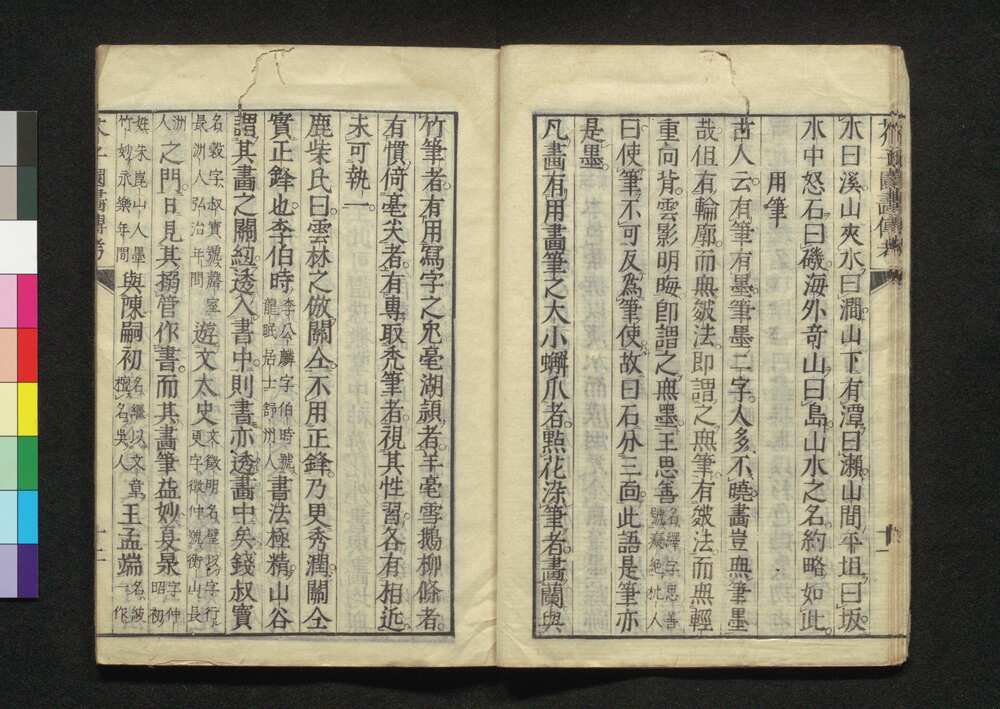 水曰溪。山夾水曰澗。山下有潭曰瀨。山間平坦曰坂
水中怒石曰磯。海外奇山曰島。山水之名約略如此。
用筆
古人云有筆有墨。筆墨二字人多不曉。畫豈無筆墨
哉。但有輪廓而無皴法。即謂之無筆。有皴法而無輕
重向背雲影明晦。卽謂之無墨。王思善名繹字思善號癡絕杭人
曰。使筆不可反為筆使。故曰石分三面。此語是筆亦
是墨。
凡畫有用畫筆之大小蟹爪者。點花染筆者。畫蘭與
竹筆者。有用寫字之兔毫湖穎者。羊毫雪鵝柳條者。
有慣倚毫尖者。有專取禿筆者。視其性習各有相近。
未可執一。
鹿柴氏曰。雲林之倣關仝。不用正鋒。乃更秀潤。關仝
實正鋒也。李伯時李公麟字伯時號龍眠居士舒州人書法極精。山谷
謂其畫之關紐透入書中。則書亦透畫中矣。錢叔寶
名穀字叔寶號磬室長洲人弘治年間遊文太史文徵明名璧以字行更字徵仲號衡山長
洲人之門。日見其搦管作書。而其畫筆益妙。夏㫤字仲昭初
姓朱崑山人墨竹妙永樂年間與陳嗣初名繼以文章檀名吳人王孟端名紱一作
芥子園畫傳考
十一
芥子園畫傳考
十二